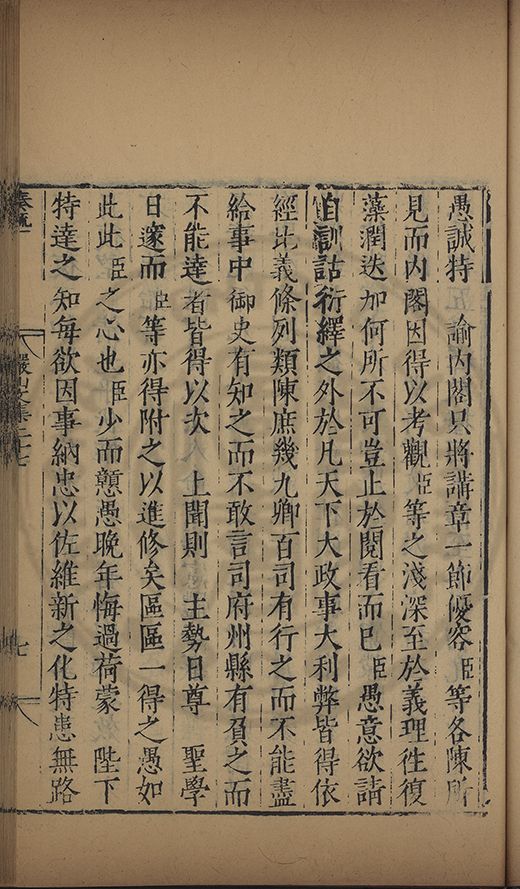 愚誠特 諭内閣只將講章一節優容臣等各陳所
見而内閣因得以考觀臣等之淺深至於義理徃復
藻潤迭加何所不可豈止於閱看而已臣愚意欲請
自訓詁衍繹之外於凡天下大政事大利弊皆得依
經比義條列類陳庶幾九卿百司有行之而不能盡
給事中御史有知之而不敢言司府州縣有負之而
不能達者皆得以次 上聞則 主勢日尊 聖學
日邃而臣等亦得附之以進修矣區區一得之愚如
此此臣之心也臣少而戇愚晚年悔過荷蒙 陛下
特達之知每欲因事納忠以佐維新之化特患無路
奏疏一
儼山文集二十七
七